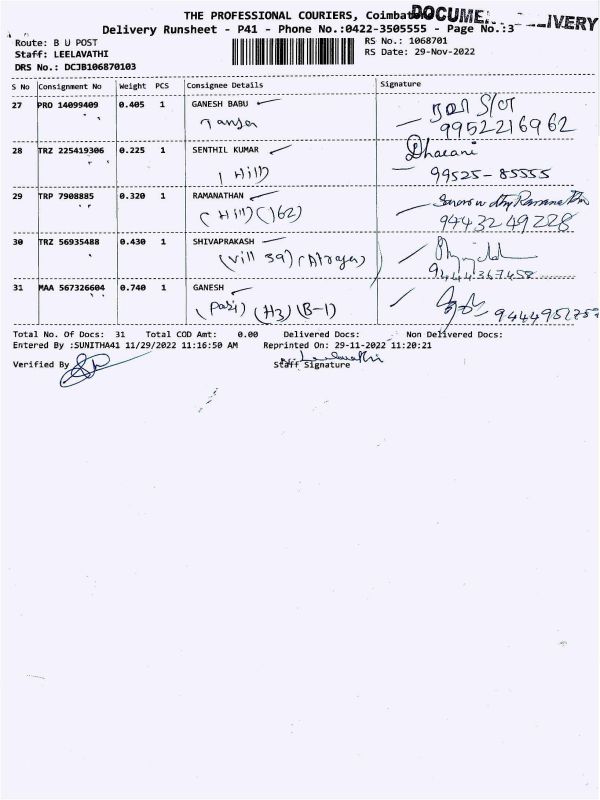 THE PROFESSIONAL COURIERS, Coimbato
Delivery Runsheet - P41 - Phone No.:0422-3505555 - Page No.:3
Route: B U POST
RS No.: 1068701
Staff: LEELAVATHI
RS Date: 29-Nov-2022
DRS No.: DCJB106870103
S No Consignment No Weight PCS Consignee Details Signature
27 PRO 14099409 0.405 1 GANESH BABU
9952216962
28 TRZ 225419306 0.225 1 SENTHIL KUMAR Dharani
1 Hill) 99525-85555
29 TRP 7908885 0.320 1 RAMANATHAN
(Hill) (162) 9443249228
30 TRZ 56935488 0.430 1 SHIVAPRAKASH
(Vill 39) 9444367458
31 MAA 567326604 0.740 1 GANESH
(H3) (B-1)
Total No. Of Docs: 31 Total COD Amt: 0.00 Delivered Docs: Non Delivered Docs:
Entered By :SUNITHA41 11/29/2022 11:16:50 AM Reprinted On: 29-11-2022 11:20:21
Verified By Leelavathi
Staff Signature